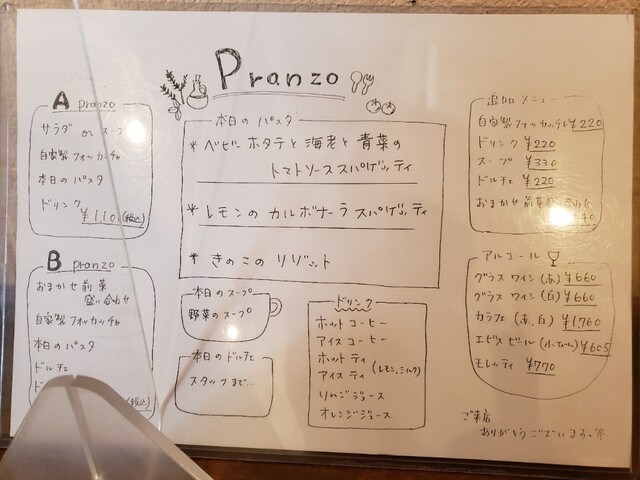 Pranzo
A pranzo
サラダ or スープ
自家製フォッカッチャ
本日の パスタ
ドリンク
(税込)
B pranzo
おまかせ前菜
盛り合わせ
自家製 フォッカッチャ
本日の パスタ
ドルチェ
(税込)
本日の パスタ
* ベビーホタテと海老と青菜の
トマトソーススパゲッティ
* レモンの カルボナーラスパゲッティ
* きのこの リゾット
本日のスープ
野菜のスープ
本日のドルチェ
スタッフまで…
ドリンク
ホットコーヒー
アイスコーヒー
ホットティ
アイスティ (レモン、ミルク)
りんごジュース
オレンジジュース
追加メニュー
自家製フォッカッチャ ¥220
ドリンク ¥220
スープ ¥330
ドルチェ ¥220
おまかせ前菜盛り合わせ
アルコール
グラスワイン (赤) ¥660
グラスワイン (白) ¥660
カラフェ (赤、白) ¥1,760
エビスビール ¥605
モレッティ ¥770
ご来店
ありがとうございます。